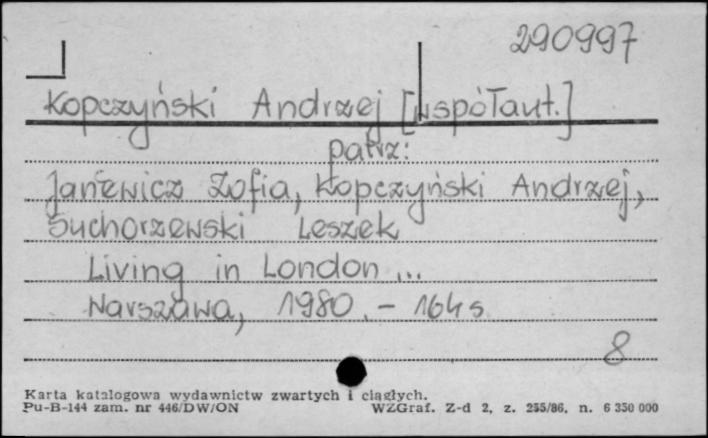 290997
Kopczyński Andrzej [współaut.]
patrz:
Janewicz Zofia, Kopczyński Andrzej,
Suchorzewski Leszek
Living in London ...
Warszawa, 1980. - 164 s
8
Karta katalogowa wydawnictw zwartych i ciągłych.
Pu-B-144 zam. nr 446/DW/ON WZGraf. Z-d 2, z. 255/86, n. 6 350 000